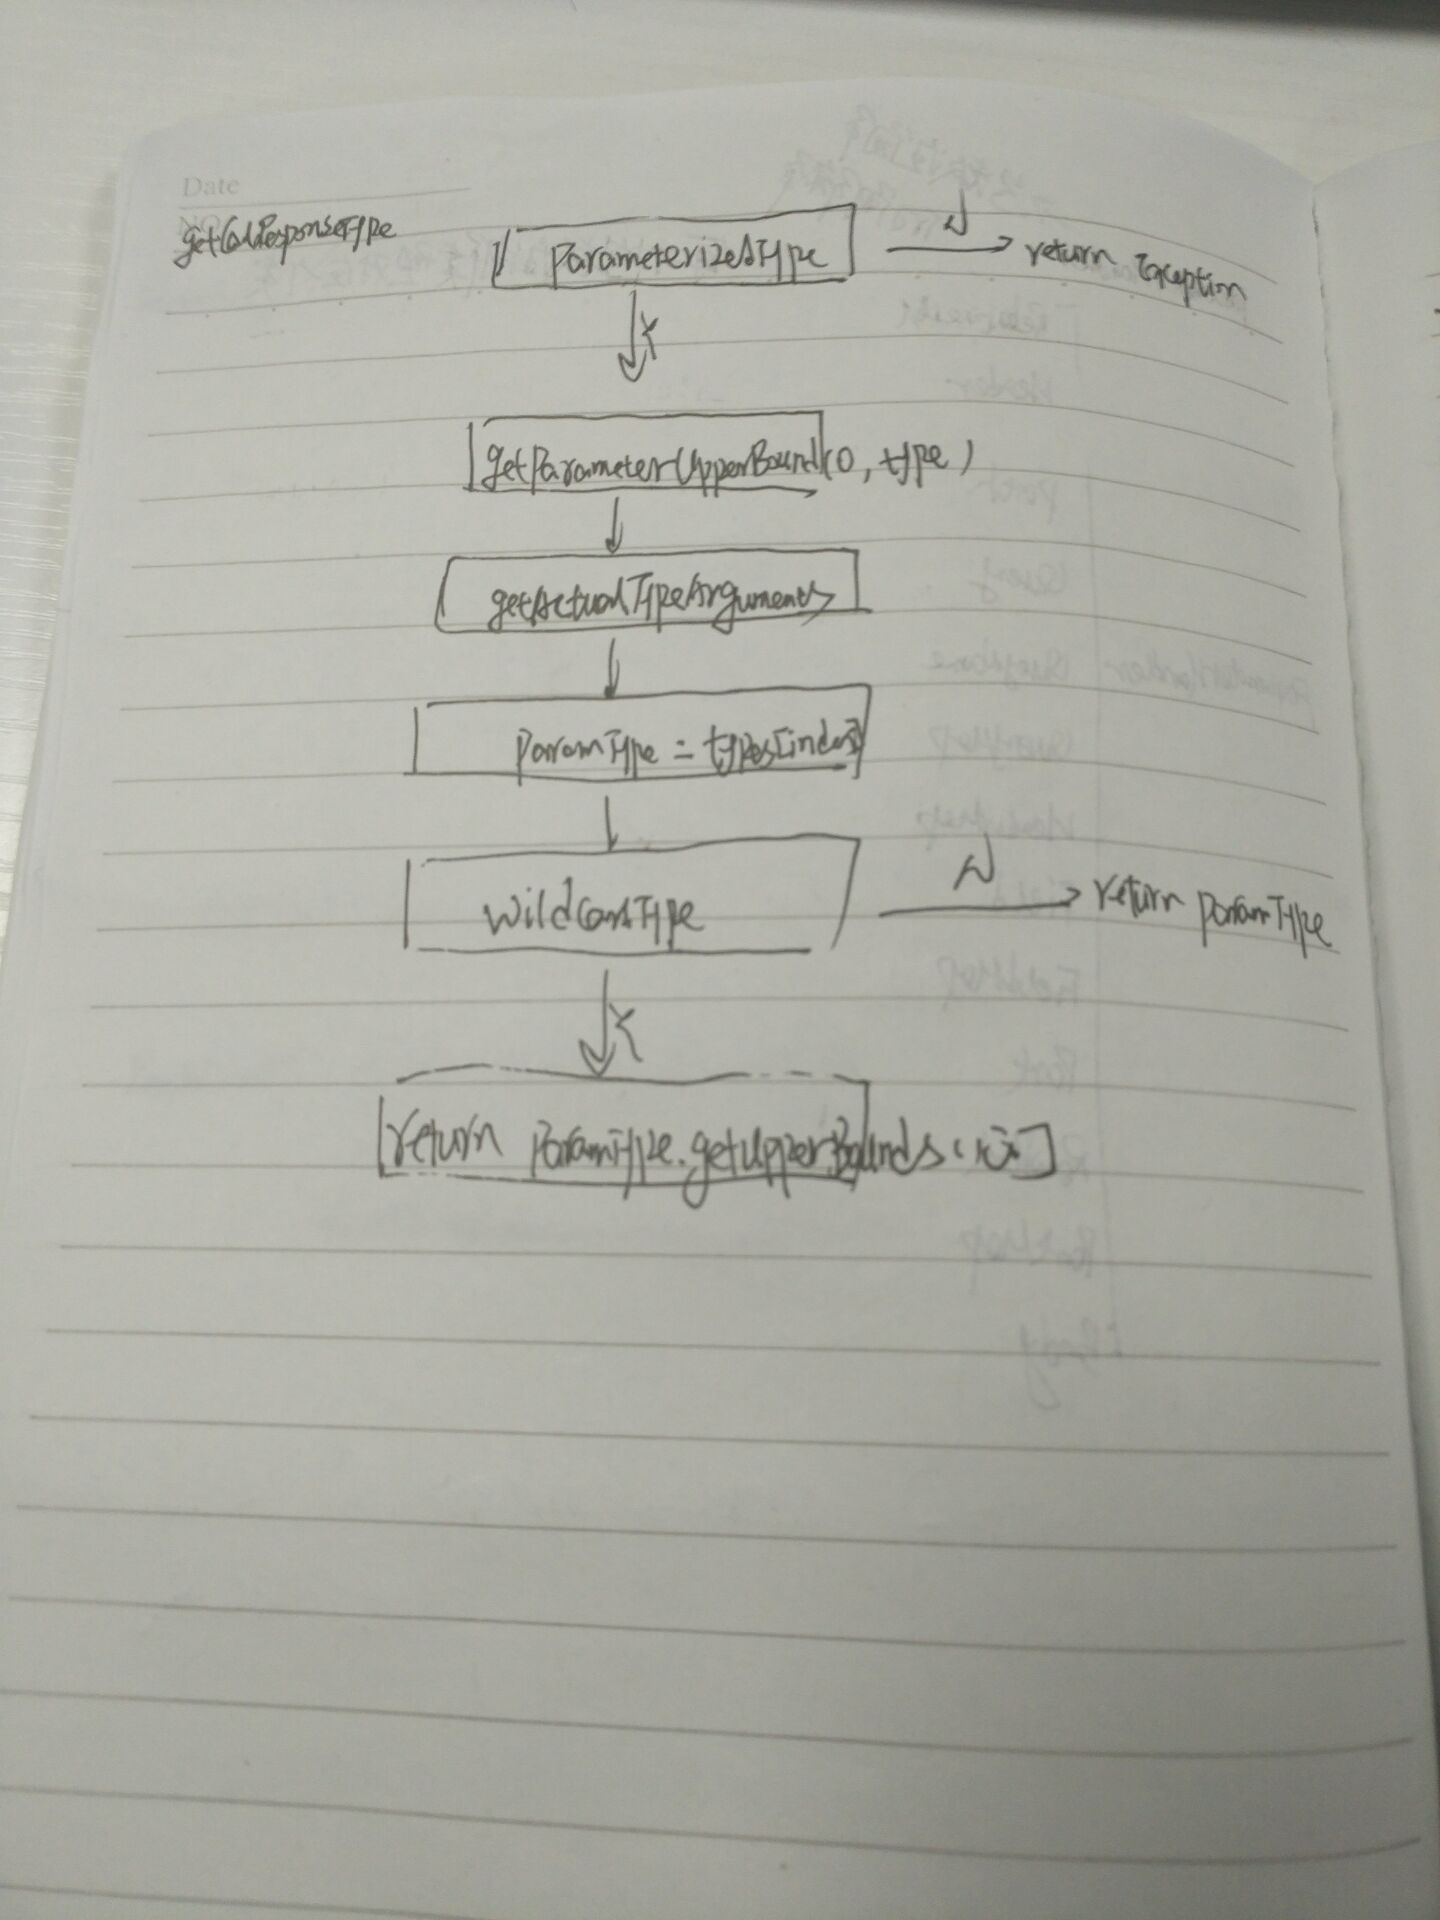 Date
NO
getCallResponseType
ParameterizedType
N
return Exception
Y
getParameterUpperBound(0, type)
getActualTypeArguments
ParamType = types[index]
WildCardType
N
return paramType
Y
return ParamType.getUpperBounds